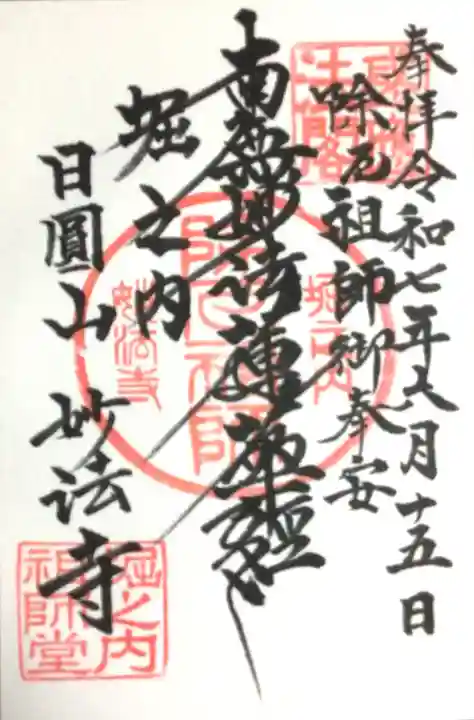 奉拝令和七年六月十五日
除厄祖師御奉安
南無妙法蓮華経
堀之内
日圓山 妙法寺
除厄祖師
堀之内
妙法寺
堀之内
祖師堂